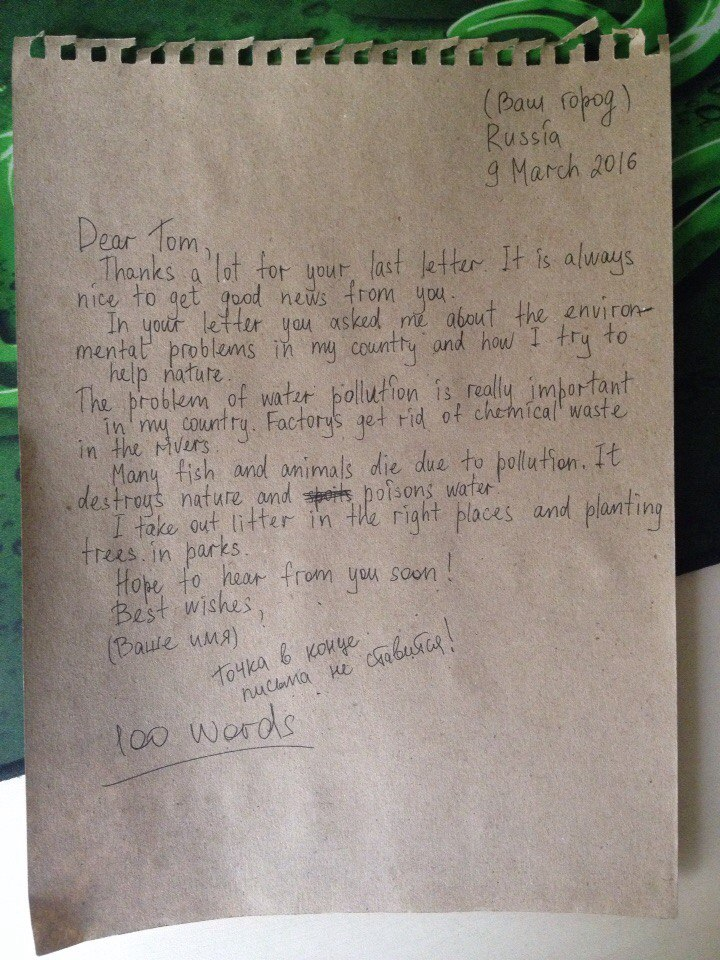 (Ваш город)
Russia
9 March 2016
Dear Tom,
Thanks a lot for your last letter. It is always
nice to get good news from you.
In your letter you asked me about the environ-
mental problems in my country and how I try to
help nature.
The problem of water pollution is really important
in my country. Factorys get rid of chemical waste
in the rivers.
Many fish and animals die due to pollution. It
destroys nature and spoils poisons water.
I take out litter in the right places and planting
trees in parks.
Hope to hear from you soon!
Best wishes,
(Ваше имя)
точка в конце
письма не ставится!
100 words